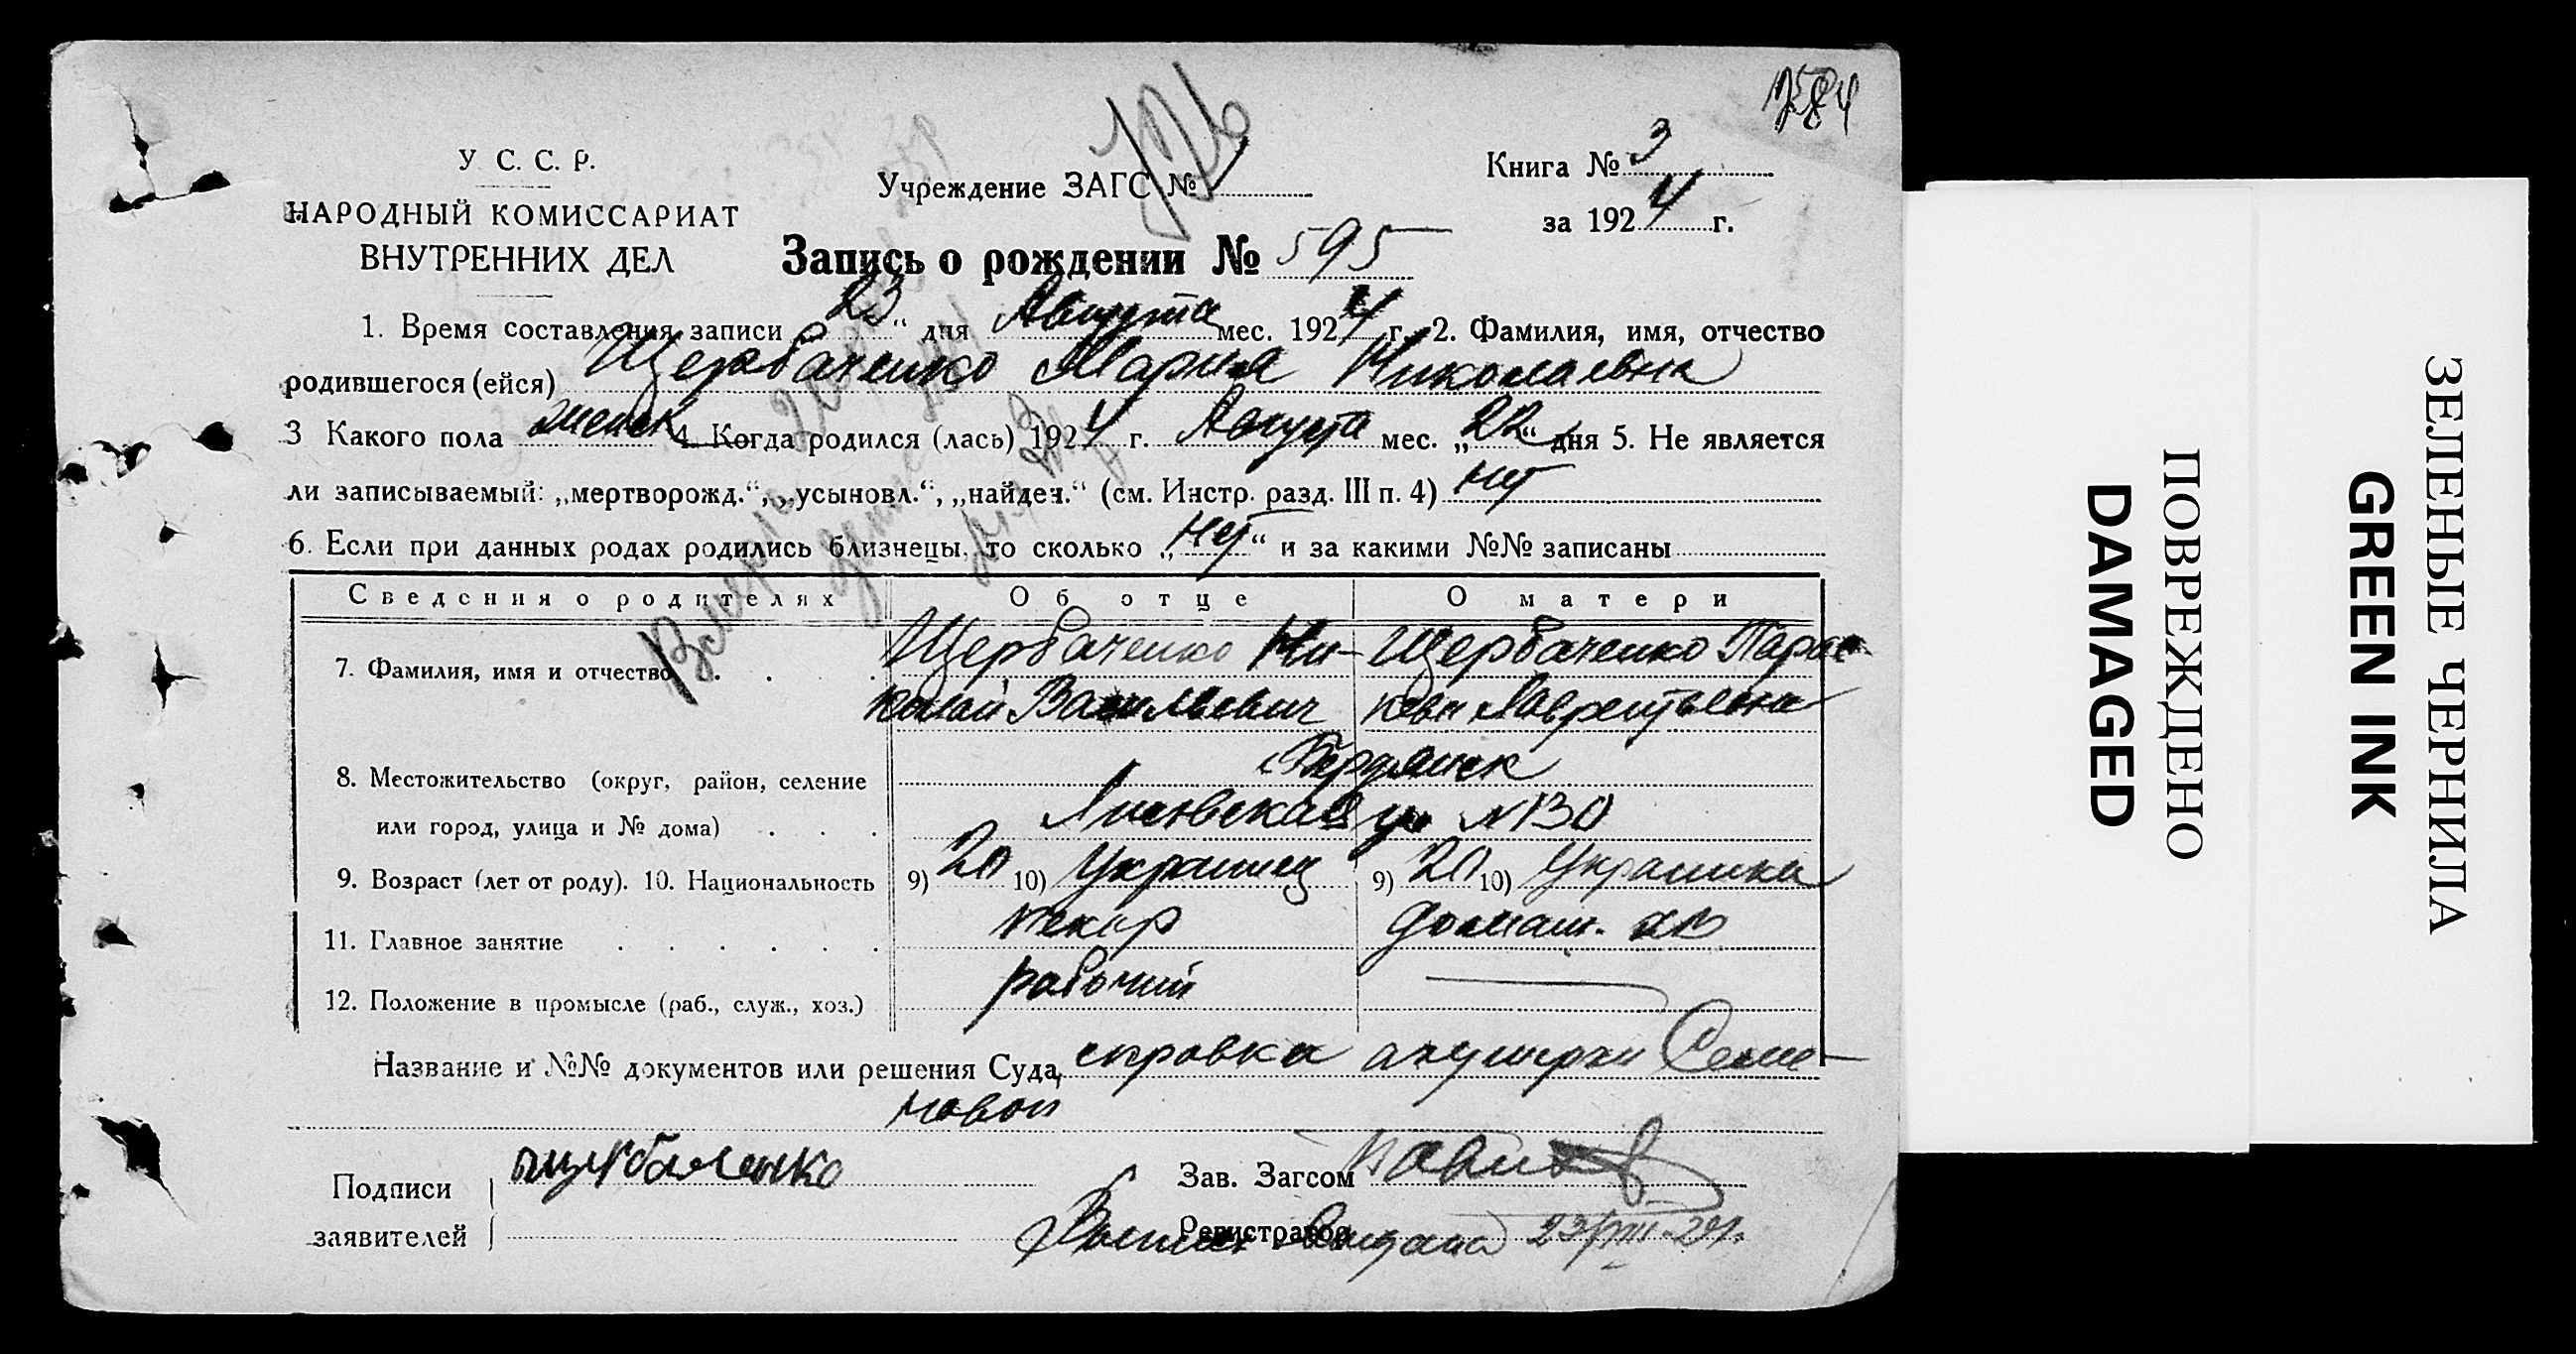 У. С. С. Р.
НАРОДНЫЙ КОМИССАРИАТ
ВНУТРЕННИХ ДЕЛ
Учреждение ЗАГС №
Книга № 3
за 1924 г.
Запись о рождении № 595
1. Время составления записи „23“ дня Августа мес. 1924 г. 2. Фамилия, имя, отчество
родившегося (ейся) Щербаченко Мария Николаевна
3 Какого пола женск 4. Когда родился (лась) 1924 г. Августа мес. „22“ дня 5. Не является
ли записываемый: „мертворожд.“, „усыновл.“, „найден.“ (см. Инстр. разд. III п. 4) нет
6. Если при данных родах родились близнецы, то сколько „нет“ и за какими №№ записаны
Сведения о родителях Об отце О матери
7. Фамилия, имя и отчество Щербаченко Ни- Щербаченко Парас
колай Васильевич кева Лаврентьевна
Бердянск
8. Местожительство (округ, район, селение
или город, улица и № дома) ул №130
9. Возраст (лет от роду). 10. Национальность 9) 20 10) Украинец 9) 20 10) Украинка
11. Главное занятие пекар домаш. хоз
12. Положение в промысле (раб., служ., хоз.) рабочий —
Название и №№ документов или решения Суда, справка акушерки Семе-
новой
Подписи
заявителей
Щербаченко
Зав. Загсом
Регистратор
23/VIII-24г.
ПОВРЕЖДЕНО
DAMAGED
ЗЕЛЕНЫЕ ЧЕРНИЛА
GREEN INK